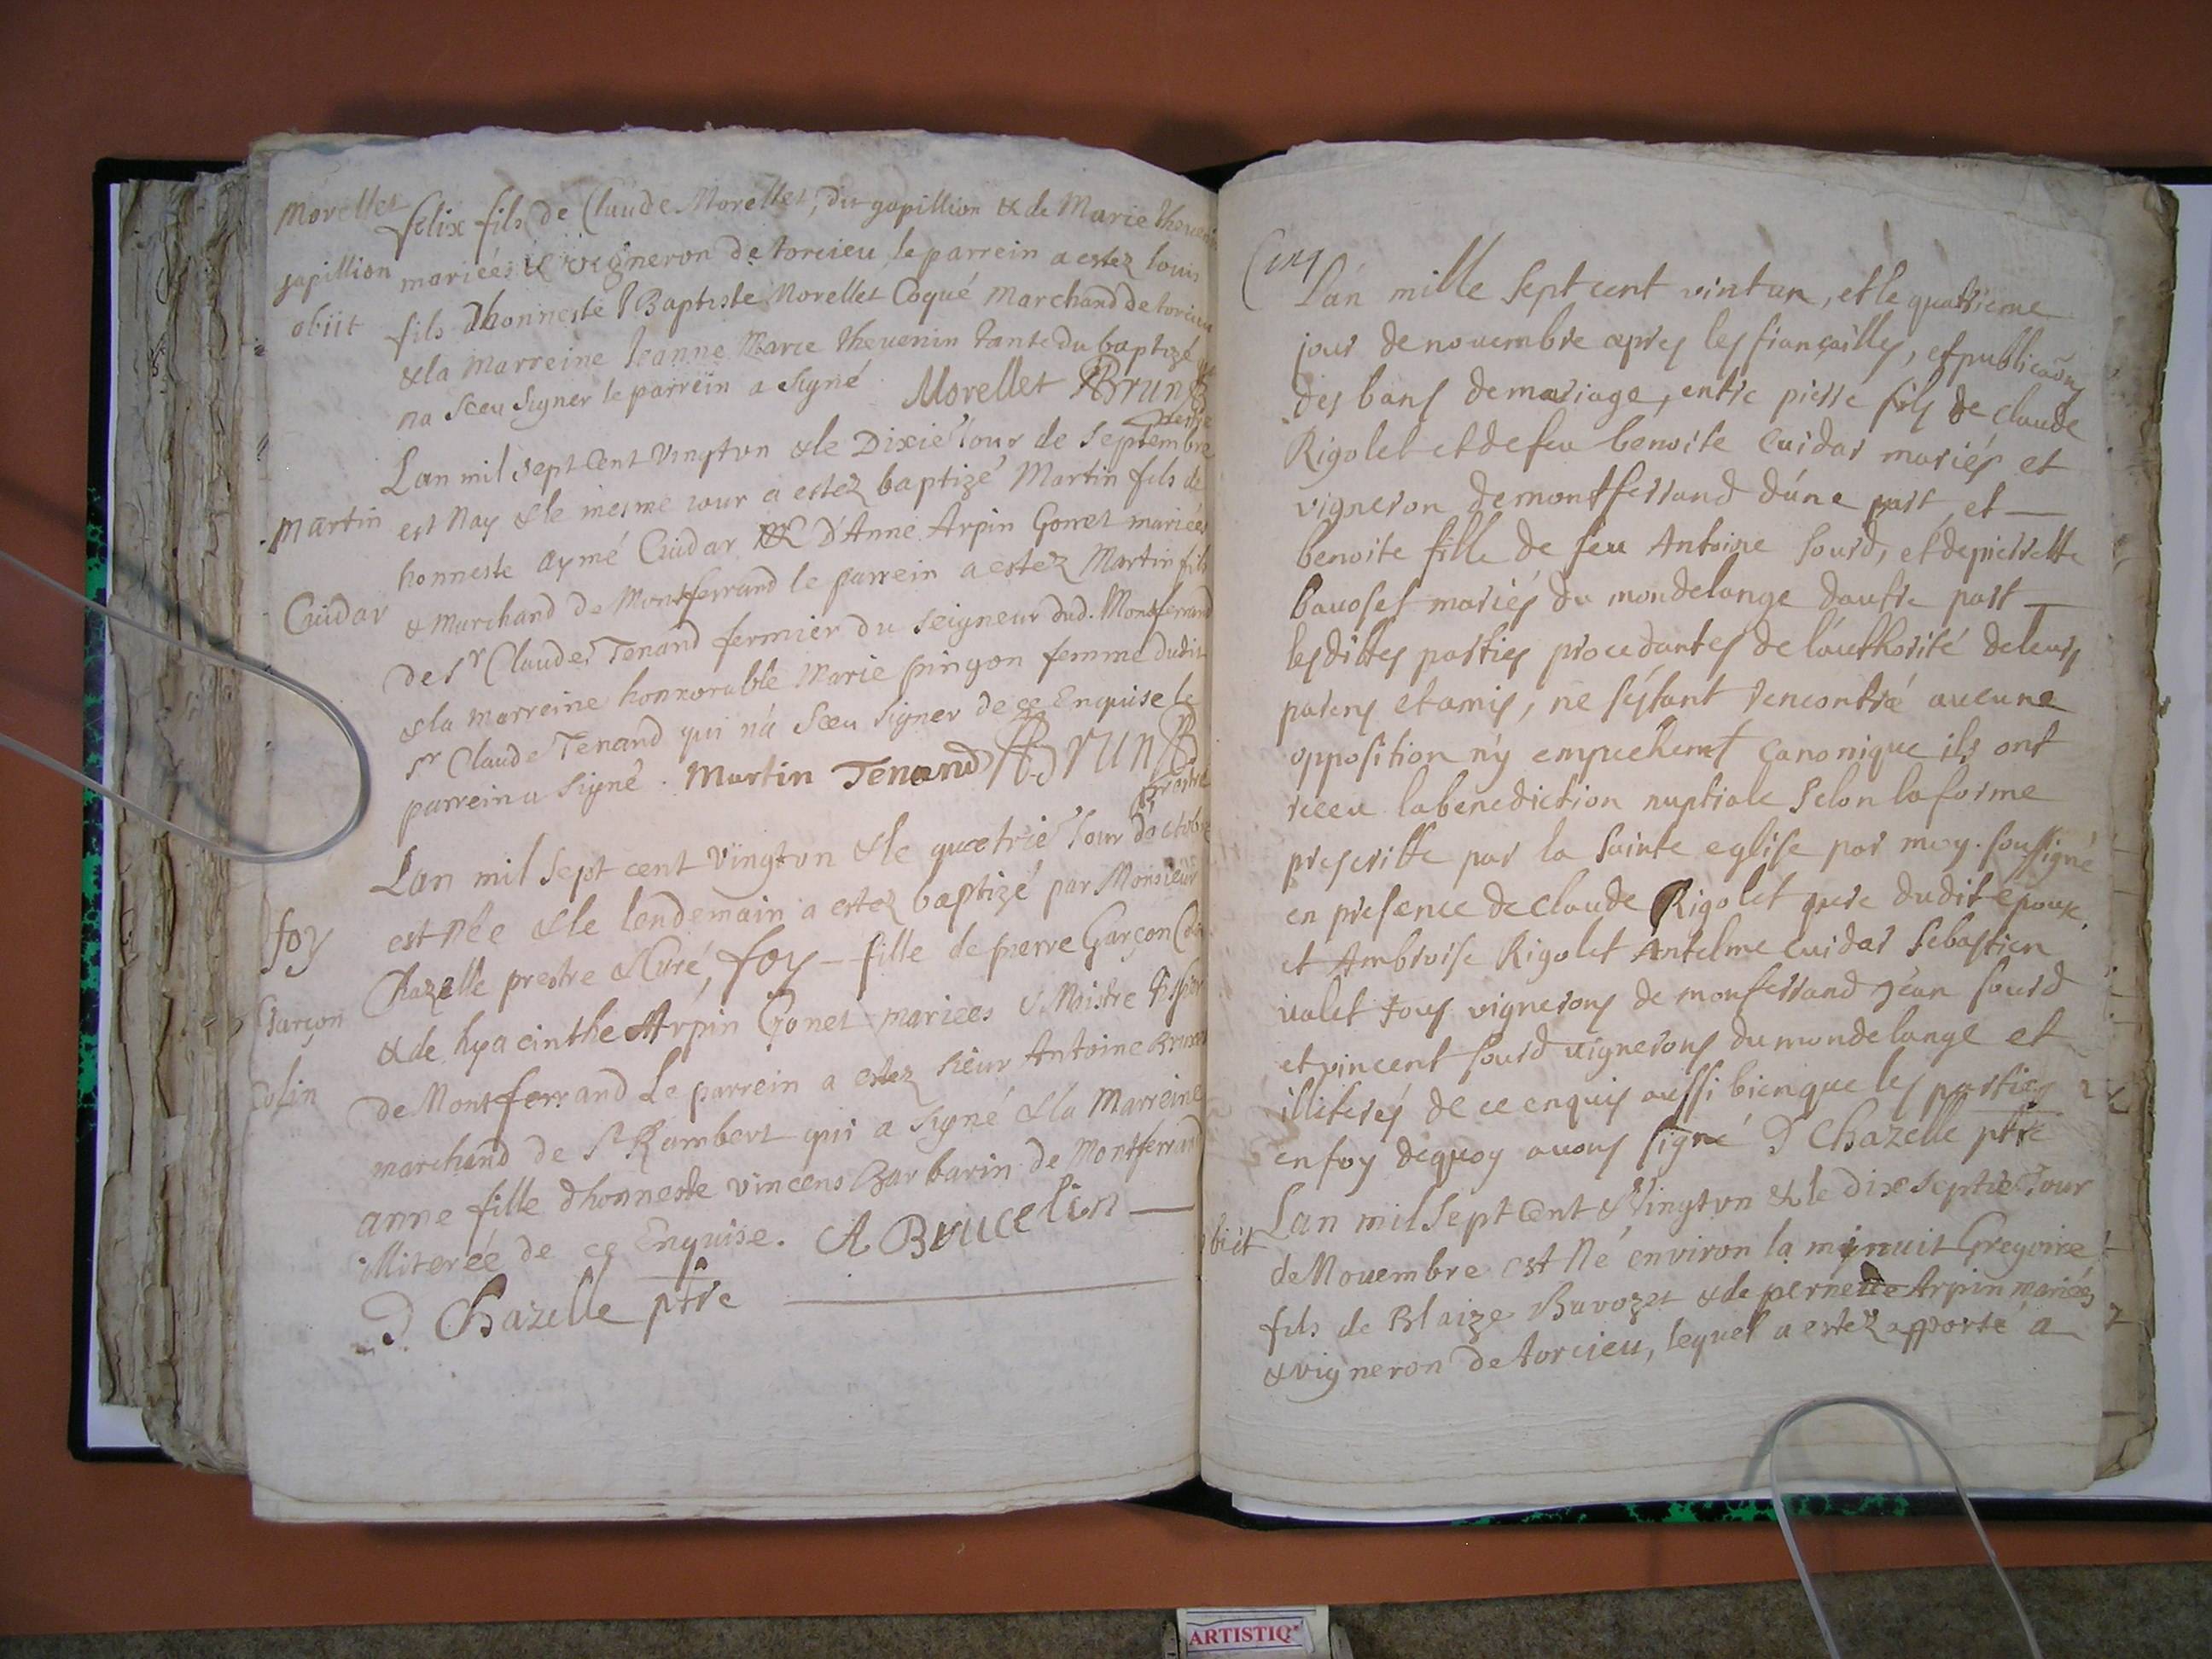 Morellet
gapillion
obiit
felix fils de Claude Morellet, dit gapillion & de Marie theuenin
mariées & vigneron de torcieu le parrein a estez louis
fils dhonneste JBaptiste Morellet Coqué Marchand de torcieu
& la Marreine Jeanne Marie theuenin tante du baptizé
na sceu signer le parrein a signé Morellet Brun
prestre
Lan mil sept cent vingt vn & le Dixie Jour de septembre
est Nay & le mesme iour a estez baptizé Martin fils de
Martin
Cuidar
honneste aymé Cuidar & D'Anne Arpin Gonet mariées
& Marchand de Montferrand le parrein a estez Martin fils
de sr Claude Tenand fermier du seigneur dud. Montferrand
& la marreine honnorable Marie pingon femme dudit
sr Claude Tenand qui n'a sceu signer de ce Enquise le
parrein a signé . Martin Tenand Brun
prestre
Lan mil sept cent vingt vn & le quatrie Jour doctobre
est Née & le lendemain a estez baptizé par Monsieur
foy
Garçon
Colin
Chazelle prestre & Curé, foy — fille de pierre Garçon
& de hyacinthe Arpin Gonet mariees
de Montferrand Le parrein a estez sieur Antoine
marchand de St Rambert qui a signé & la Marreine
anne fille dhonneste vincens Barbarin de Montferrand
illiterée de ce Enquise. A Brucelin —
D. Chazelle ptre
Lán mille sept cent vint un, et le quatrieme
jour de nouembre apres les fiançailles, et publicaõns
des bans de mariage, entre pierre fils de claude
Rigolet et de feu benoite Cuidar mariés et
vigneron de montferrand dúne part, et —
benoite fille de feu Antoine sourd, et de pierrette
bauoset mariés du mondelange dautre part —
lesdittes parties procedantes de láuthorité de leurs
parens et amis, ne séstant rencontré aucune
opposition n'y empuchemt canonique ils ont
receu la benediction nuptiale selon la forme
prescritte par la sainte eglise par moy soussigné
en presence de claude Rigolet pere dudit epoux
et Ambroise Rigolet Antelme cuidar sebastien
ualet tous vignerons de monferrand jéan sourd
et vincent sourd vignerons du mondelange et
illiterés de ce enquis aussi bien que les parties
en foy dequoy auons signé D Chazelle ptre
Lan mil sept cent & Vingt vn & le dix septie Jour
biit
de Nouembre est Né environ la minuit Gregoire
fils de Blaize Bavozet & de pernette Arpin mariées
& vigneron de torcieu, lequel a estez apporté a
ARTISTIQ